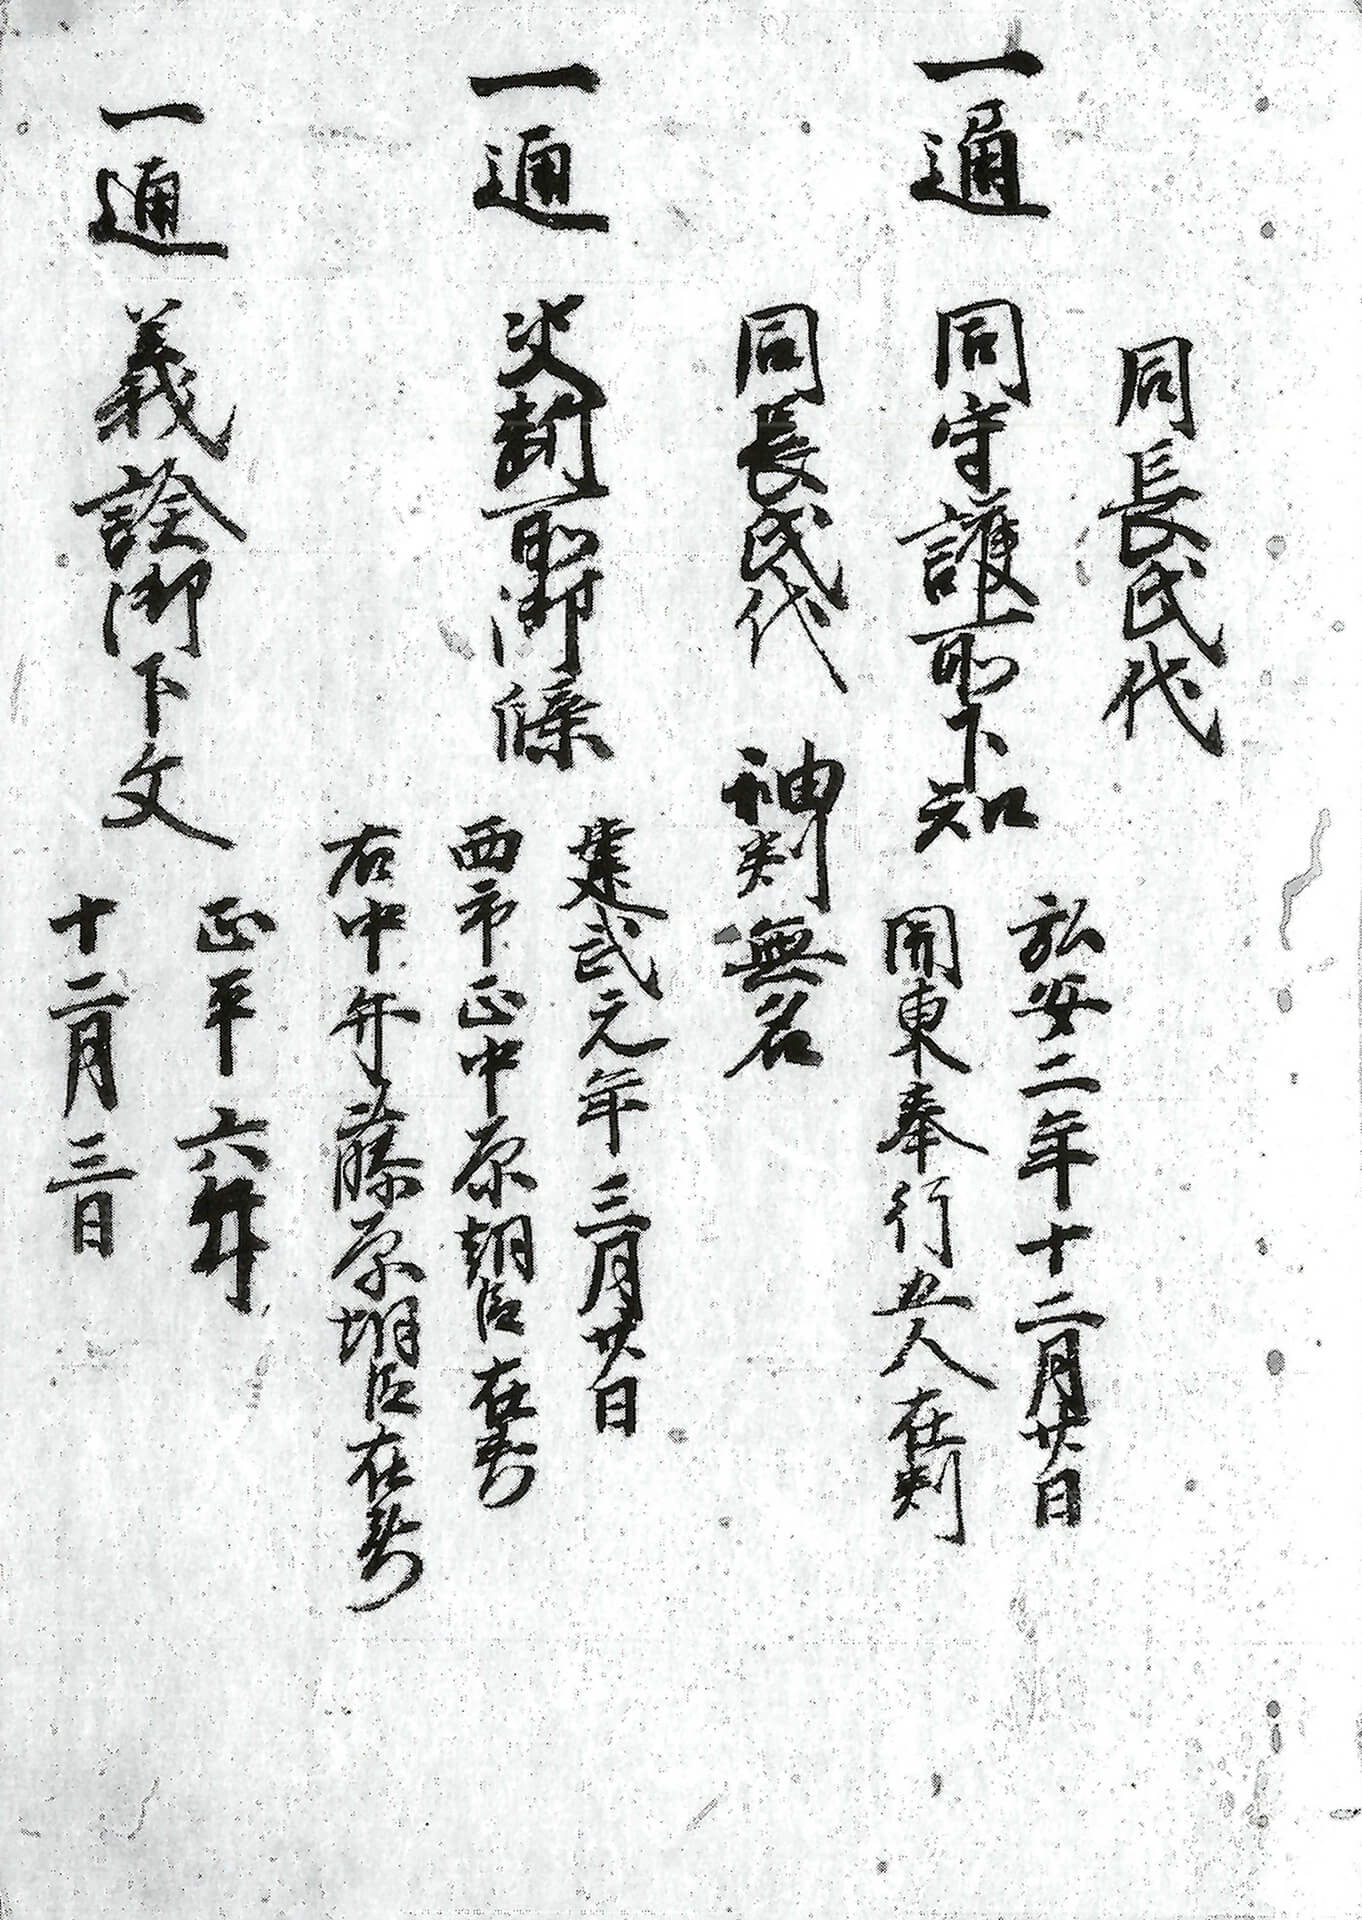 同長氏代
一通 同守護所下知
弘安二年十二月廿日
関東奉行五人在判
同長氏代 神判無名
一通 決断所御牒
建武元年三月廿日
西市正中原朝臣在判
右中弁藤原朝臣在判
一通 義詮御下文
正平六年
十二月三日